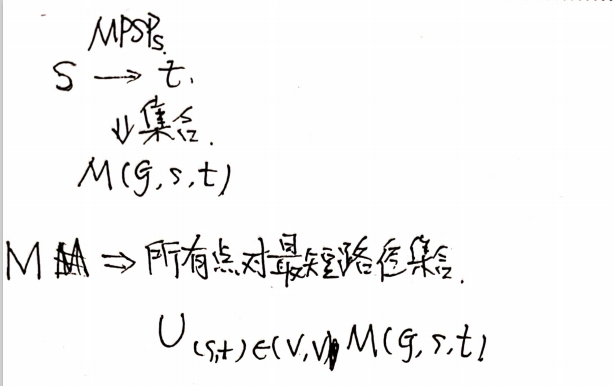 MPSPs.
S → t.
⇓集合.
M(G,s,t)
M ⇒ 所有点对最短路径集合.
∪(s,t)∈(V,V) M(G,s,t)